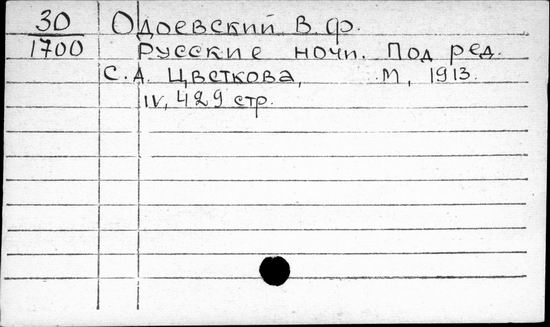 30 Одоевский В. Ф.
1700 Русские ночи. Под ред.
С. А. Цветкова, М, 1913.
IV, 429 стр.